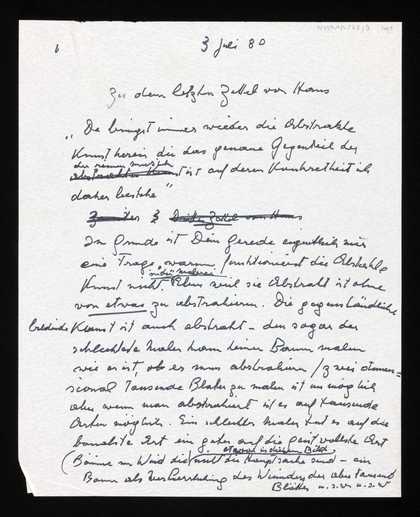 3 Juli 80
Zu dem letzten Zettel von Hans
"Du bringst immer wieder die Abstrakte
Kunst herein die das genaue Gegenteil der
ist auf deren Konkretheit ich
daher bestehe"
Im Grunde ist Dein Gerede eigentlich nur
eine Frage warum funktioniert die Abstrakte
Kunst nicht. Eben weil sie Abstrakt ist ohne
von etwas zu abstrahieren. Die gegenständliche
Kunst ist auch abstrakt - denn sogar der
schlechteste Maler kann keinen Baum malen
wie er ist, ob er muss abstrahieren / zwei dimen-
sional Tausende Blätter zu malen ist unmöglich
aber wenn man abstrahiert ist es auf tausende
Arten möglich. Ein schlechter Maler tut es auf die
banalste Art ein guter auf die geistvollste Art
(Bäume im Wind die nicht die Hauptsache sind - ein
Baum als Verherrlichung des Wunders der aber tausend
Blätter u.s.w. u.s.w